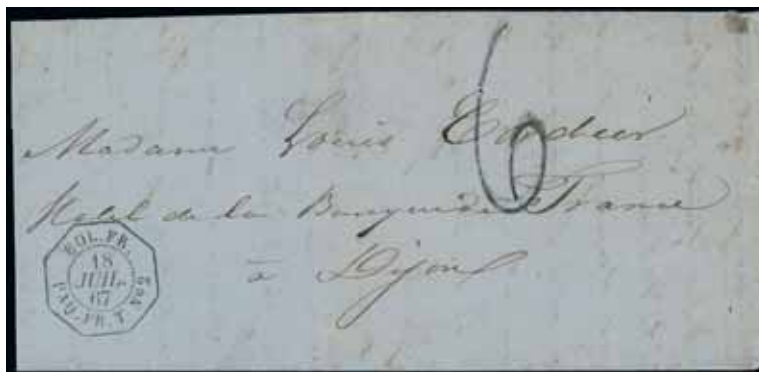 6
Madame Louis
Hotel de la Banque de France
à Dijon
COL. FR.
18
JUIL.
67
PAQ. FR. T